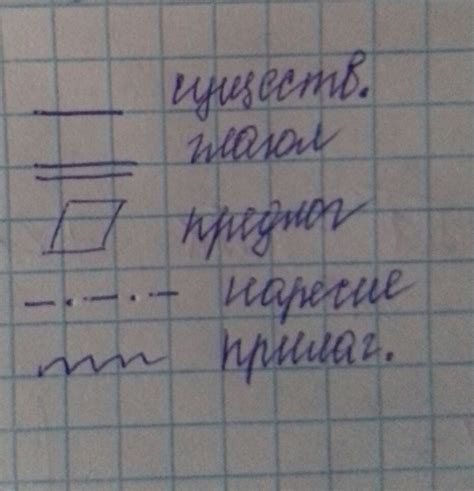 существ.
глагол
предлог
наречие
прилаг.